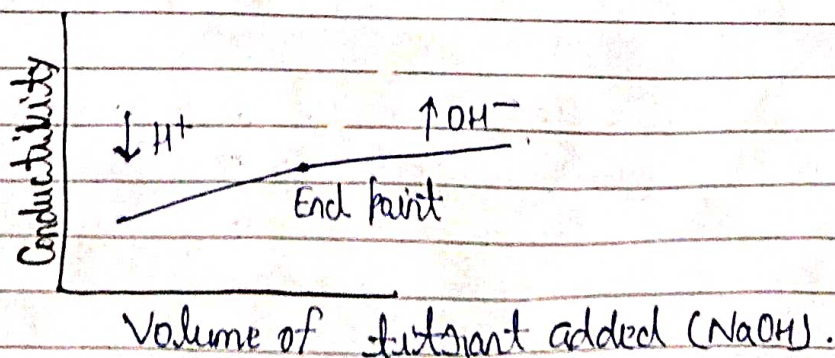 Conductivity
↓ H+
↑ OH−
End point
Volume of titrant added (NaOH).